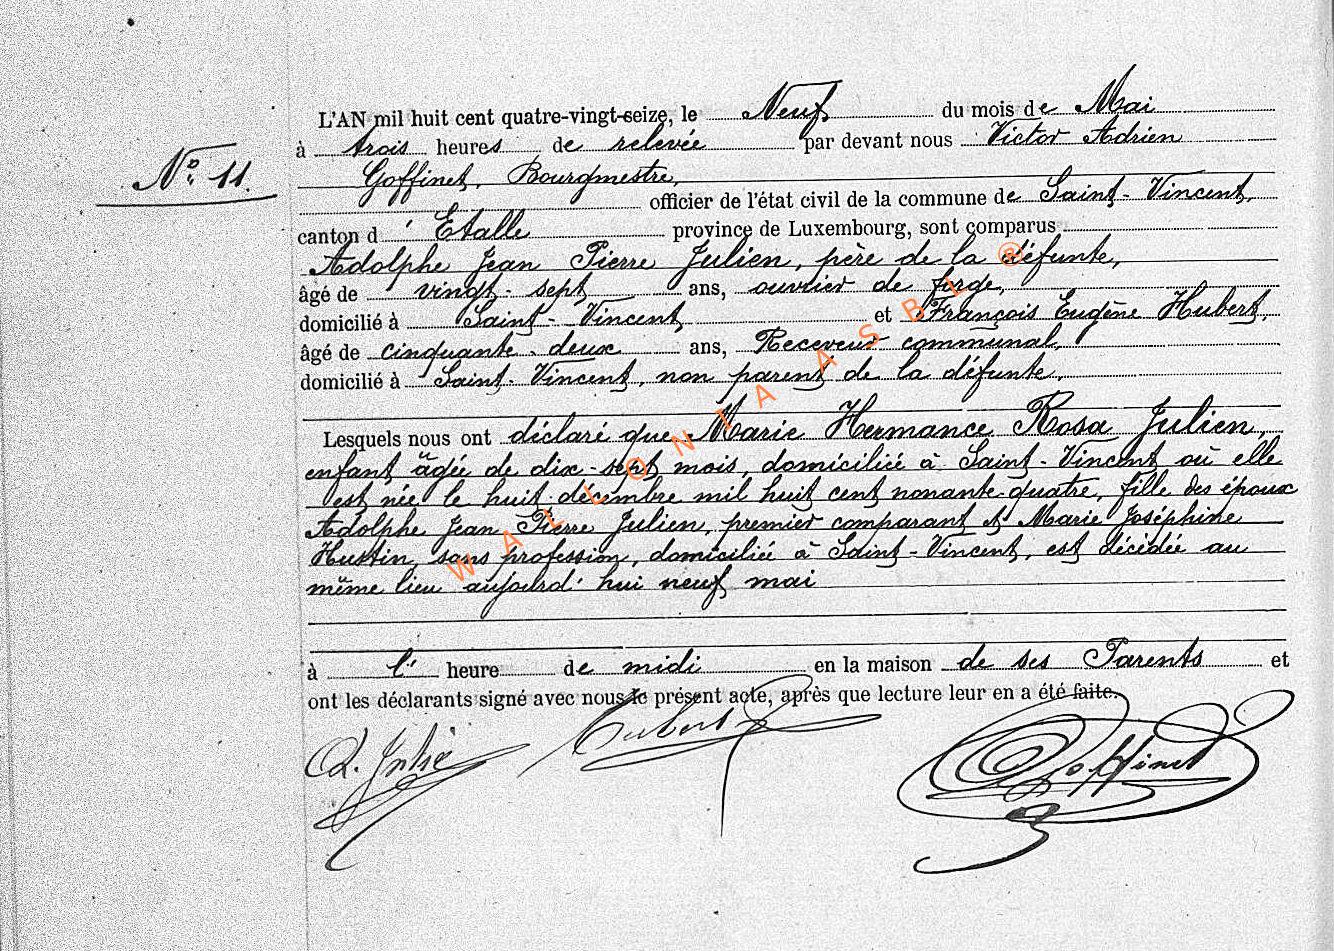 L'AN mil huit cent quatre-vingt-seize, le Neuf du mois de Mai
à trois heures de relevée par devant nous Victor Adrien
Nº 11.
Goffinet, Bourgmestre,
officier de l'état civil de la commune de Saint-Vincent,
canton d'Etalle province de Luxembourg, sont comparus
Adolphe Jean Pierre Julien, père de la défunte,
âgé de vingt-sept ans, ouvrier de forge,
domicilié à Saint-Vincent et François Eugène Hubert,
âgé de cinquante-deux ans, Receveur communal,
domicilié à Saint-Vincent, non parent de la défunte,
Lesquels nous ont déclaré que Marie Hermance Rosa Julien,
enfant âgée de dix-sept mois, domiciliée à Saint-Vincent où elle
est née le huit décembre mil huit cent nonante-quatre, fille des époux
Adolphe Jean Pierre Julien, premier comparant et Marie Joséphine
Hustin, sans profession, domiciliée à Saint-Vincent, est décédée au
même lieu aujourd'hui neuf mai
à l' heure de midi en la maison de ses Parents et
ont les déclarants signé avec nous le présent acte, après que lecture leur en a été faite.
Hubert
Goffinet
WALLONIA ASBL ®